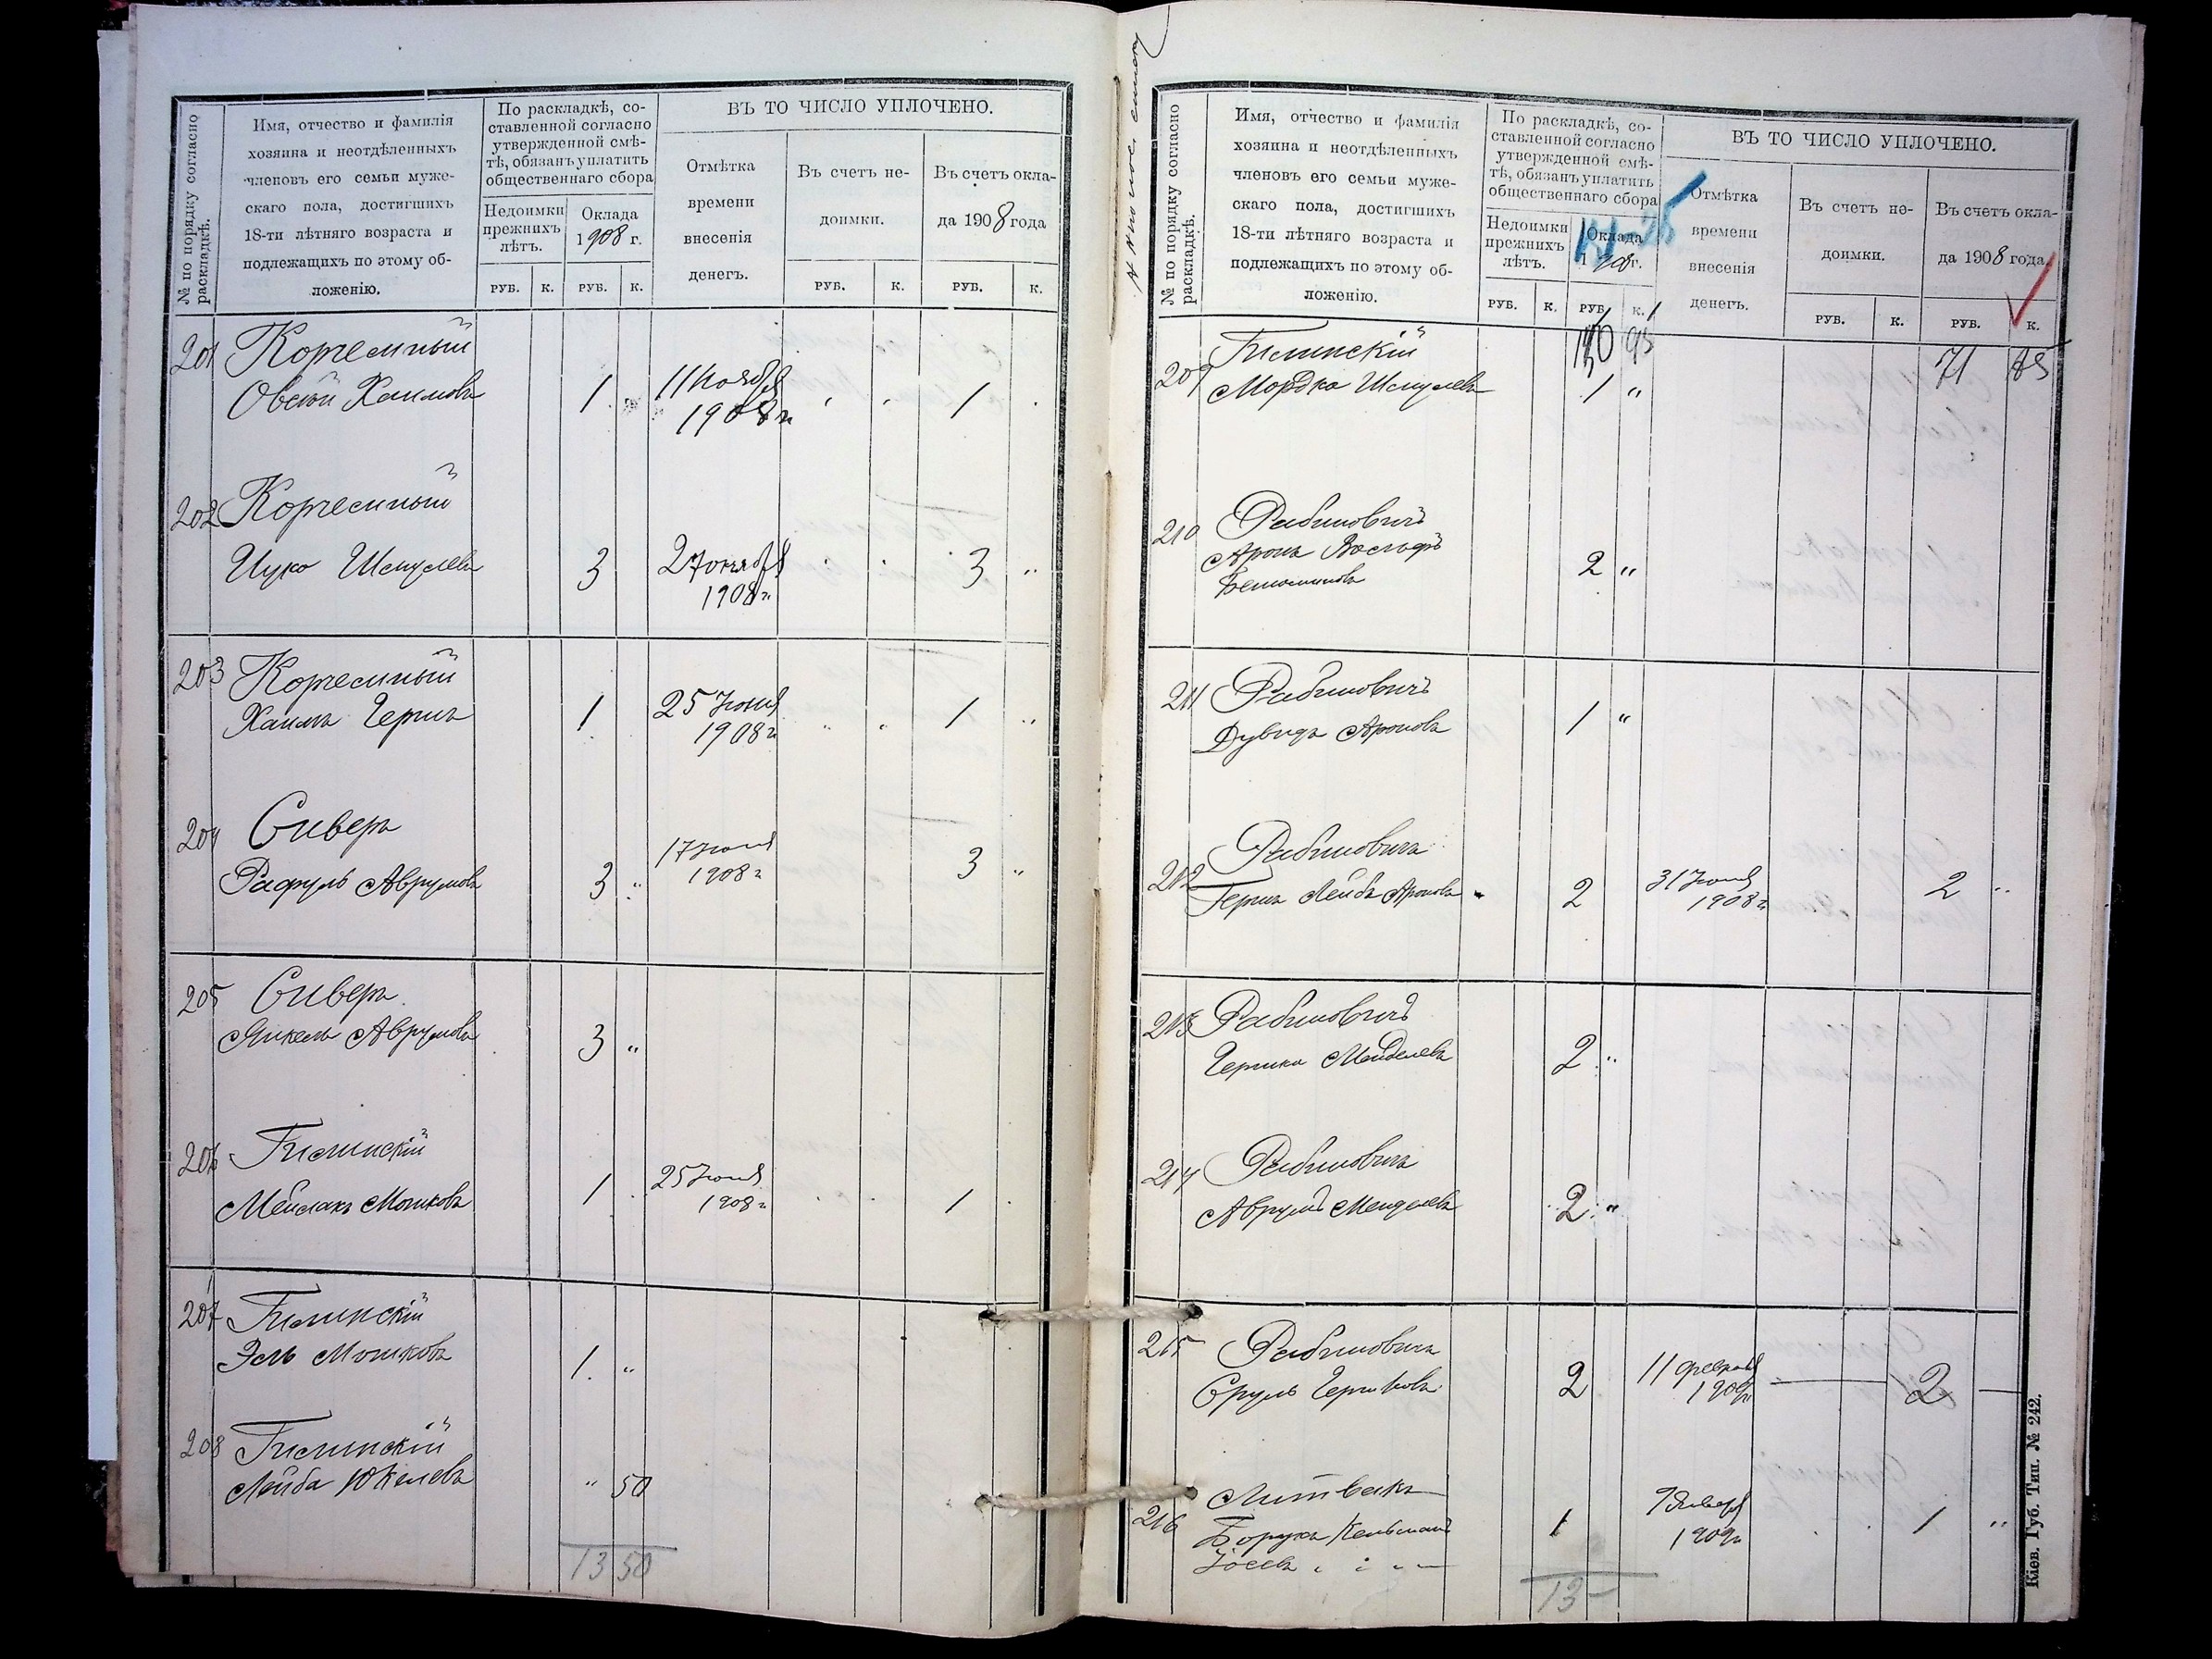 № по порядку согласно раскладкѣ.
Имя, отчество и фамилія
хозяина и неотдѣленныхъ
членовъ его семьи муже-
скаго пола, достигшихъ
18-ти лѣтняго возраста и
подлежащихъ по этому об-
ложенію.
По раскладкѣ, со-
ставленной согласно
утвержденной смѣ-
тѣ, обязанъ уплатить
общественнаго сбора
Недоимки
прежнихъ
лѣтъ.
Оклада
1908 г.
ВЪ ТО ЧИСЛО УПЛОЧЕНО.
Отмѣтка
времени
внесенія
денегъ.
Въ счетъ не-
доимки.
Въ счетъ окла-
да 1908 года
РУБ. К. РУБ. К. РУБ. К. РУБ. К.
201 Корчемный
Овсей Хаимовъ 1 11 Ноября 1908 г. 1
202 Корчемный
Ицко Шмулевъ 3 27 октября 1908 г. 3 "
203 Корчемный
Хаимъ Герша 1 25 Іюня 1908 г. 1 "
204 Сиверъ
Рафуль Аврумовъ 3 " 17 Іюня 1908 г. 3 "
205 Сиверъ
Янкель Аврумовъ 3 "
206 Гилинскій
Мейлахъ Мошковъ 1 25 Іюня 1908 г. 1
207 Гилинскій
Эль Мошковъ 1 "
208 Гилинскій
Лейба Юкелевъ " 50
13 50
№ по порядку согласно раскладкѣ.
Имя, отчество и фамилія
хозяина и неотдѣленныхъ
членовъ его семьи муже-
скаго пола, достигшихъ
18-ти лѣтняго возраста и
подлежащихъ по этому об-
ложенію.
По раскладкѣ, со-
ставленной согласно
утвержденной смѣ-
тѣ, обязанъ уплатить
общественнаго сбора
Недоимки
прежнихъ
лѣтъ.
Оклада
1908 г.
ВЪ ТО ЧИСЛО УПЛОЧЕНО.
Отмѣтка
времени
внесенія
денегъ.
Въ счетъ не-
доимки.
Въ счетъ окла-
да 1908 года
РУБ. К. РУБ. К. РУБ. К. РУБ. К.
71 85
209 Гилинскій
Мордко Шмулевъ 1 "
210 Рабиновичъ
Аронъ Вольфъ
Беньоминовъ 2 "
211 Рабиновичъ
Дувидъ Ароновъ 1 "
212 Рабиновичъ
Гершъ Лейба Ароновъ 2 31 Іюля 1908 г. 2 "
213 Рабиновичъ
Гершко Менделевъ 2 "
214 Рабиновичъ
Аврумъ Менделевъ 2 "
215 Рабиновичъ
Сруль Гершковъ 2 11 февраля 1909 г. 2
216 Литвакъ
Борухъ Кельманъ
Іосевъ 1 7 Января 1909 г. 1 "
13 -
Кіев. Губ. Тип. № 242.